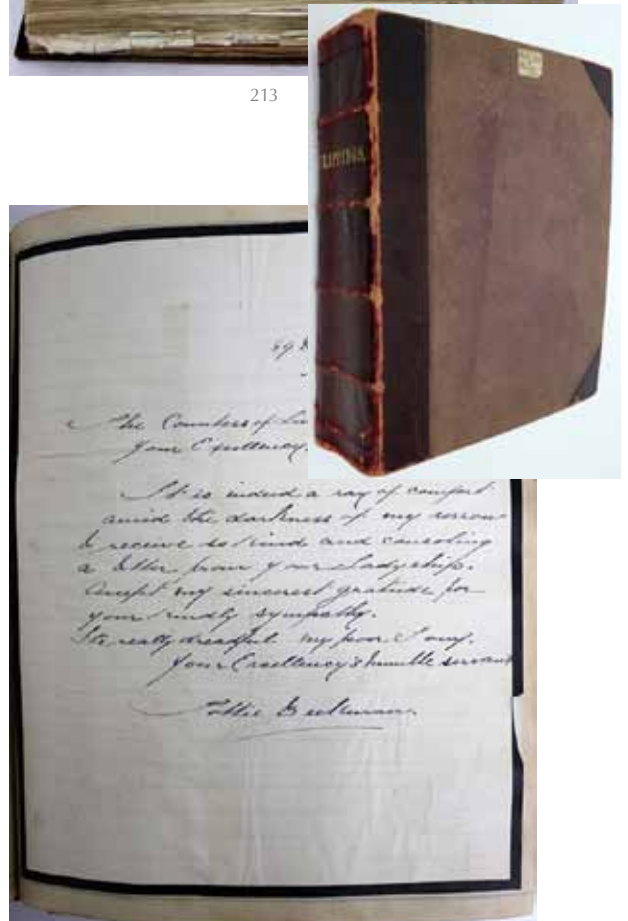 213
LIPPINGS.
The Countess of
Your Excellency.
It is indeed a ray of comfort
amid the darkness of my sorrow
to receive so kind and consoling
a letter from your Ladyship.
Accept my sincerest gratitude for
your kindly sympathy.
Its really dreadful my poor
Your Excellency's humble servant